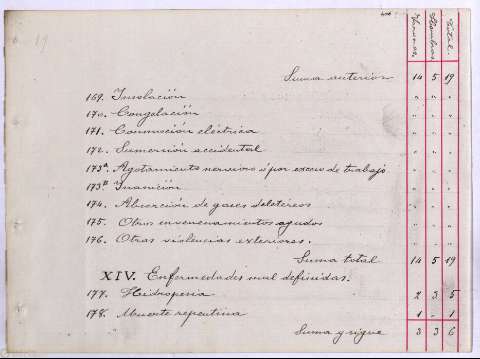 Varones. Hembras. Total.
Suma anterior 14 5 19
169. Insolación " " "
170. Congelación " " "
171. Conmoción eléctrica " " "
172. Sumersión accidental " " "
173ª. Agotamiento nervioso ó por exceso de trabajo " " "
173ᴮ. Inanición " " "
174. Absorción de gases deletéreos " " "
175. Otros envenenamientos agudos " " "
176. Otras violencias exteriores. " " "
Suma total 14 5 19
XIV. Enfermedades mal definidas.
177. Hidropesia 2 3 5
178. Muerte repentina 1 " 1
Suma y sigue 3 3 6